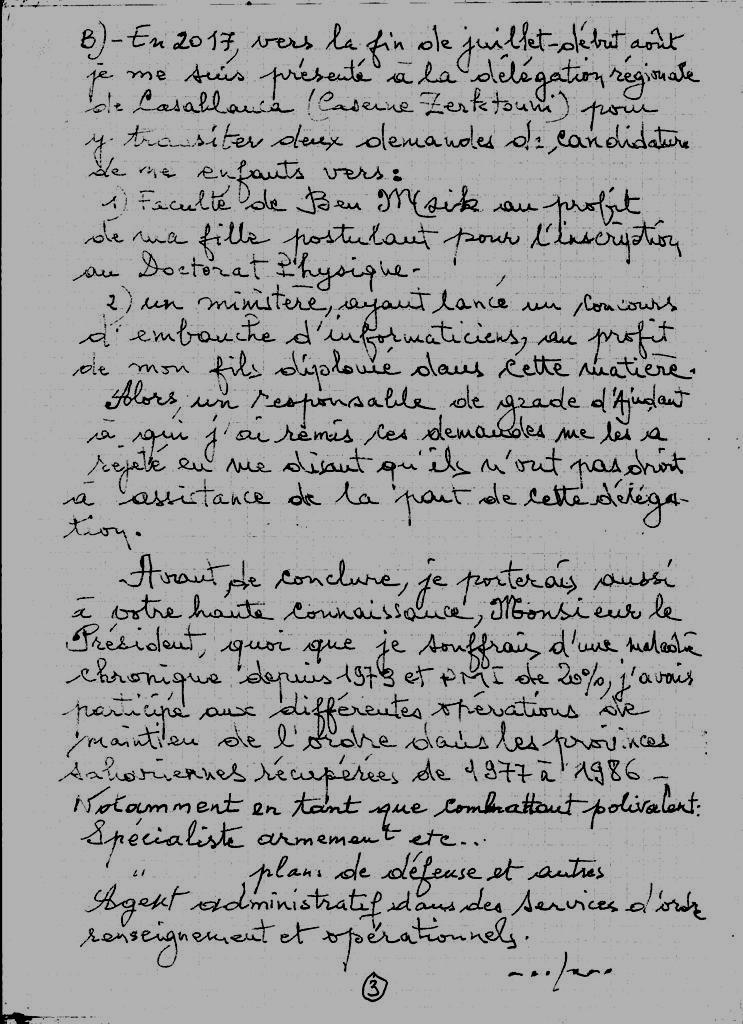 B)-En 2017, vers la fin de juillet-début août
je me suis présenté à la délégation régionale
de Casablanca (Caserne Zerktouni) pour
y transiter deux demandes de candidature
de me enfants vers :
1) Faculté de Ben Msik au profit
de ma fille postulant pour l'inscription
au Doctorat Physique.
2) un ministère, ayant lancé un concours
d'embauche d'informaticiens, au profit
de mon fils diplomé dans cette matière.
Alors, un responsable de grade d'Ajudant
à qui j'ai remis ces demandes me les a
rejeté en me disant qu'ils n'ont pas droit
à assistance de la part de cette déléga-
tion.
Avant de conclure, je porterais aussi
à votre haute connaissance, Monsieur le
Président, quoi que je souffrais d'une maladie
chronique depuis 1973 et PMI de 20%, j'avais
participé aux différentes opérations de
maintien de l'ordre dans les provinces
sahariennes récupérées de 1977 à 1986 -
Notamment en tant que combattant polivalent :
Spécialiste armement etc...
" plans de défense et autres
Agent administratif dans des services d'ordre
renseignement et opérationnels.
.../...
3